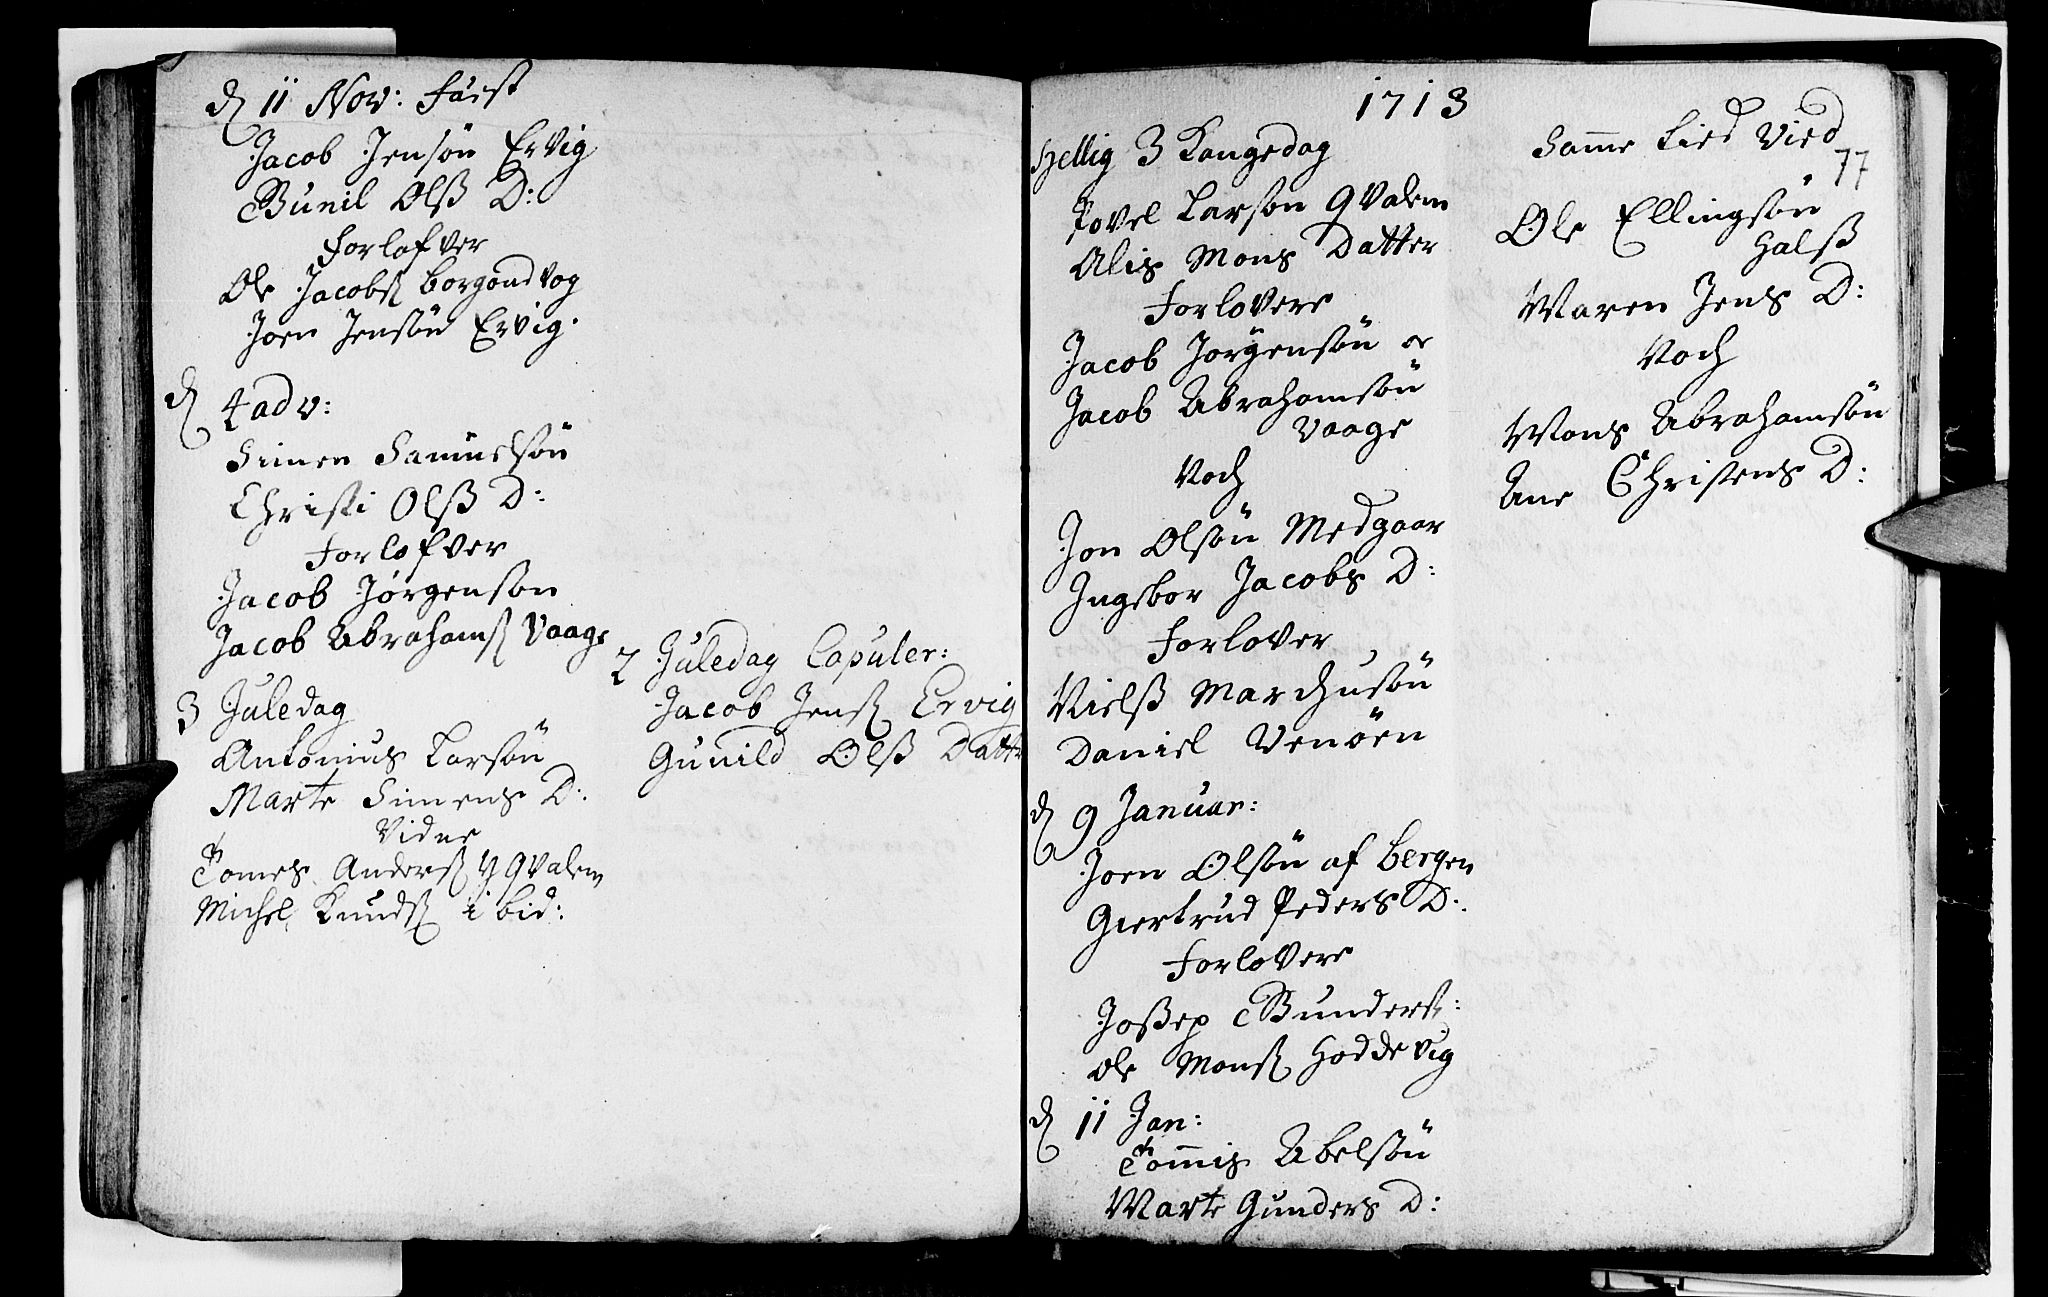 d 11 Nov: Fæst
Jacob Jensøn Ervig
Gunil Olß D:
Forlofver
Ole Jacobs Borgundvog
Joen Jensøn Ervig.
d 4 adv:
Simen Samuelsøn
Christi Olß D:
Forlofver
Jacob Jørgenson
Jacob Abrahams Vaage
3 Juledag
Antonius Larsøn
Marte Simens D:
Vidne
Tomes Anders Qvalem
Michel Knuds ibid:
2 Juledag Copuler:
Jacob Jens Ervig
Gunild Olß Datter
1713
77
Hellig 3 Kongedag
Povel Larson Qvalem
Alis Mons Datter
Forlovere
Jacob Jørgensøn oc
Jacob Abrahamsøn
Vaage
Noch
Jon Olsøn Medgaar
Ingebor Jacobs D:
Forlover
Nielß Marchusøn
Daniel Venøen
d 9 Januar:
Joen Olsøn af Bergen
Giertrud Peders D:
Forlovere
Joßep Gunders:
Ole Mons Hoddevig
d 11 Jan:
Tommis Abelsøn
Marte Gunders D:
Samme Tied Vied
Ole Ellingsøn
Halß
Maren Jens D:
Noch
Mons Abrahamsøn
Ane Christens D: